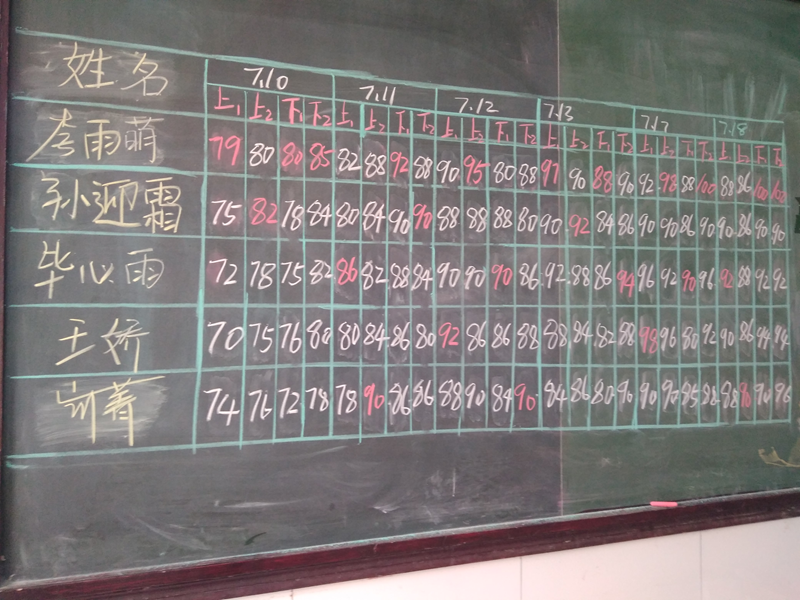 姓名 7.10 7.11 7.12 7.13 7.17 7.18
上1 上2 下1 下2 上1 上2 下1 下2 上1 上2 下1 下2 上1 上2 下1 下2 上1 上2 下1 下2 上1 上2 下1 下2
李雨萌 79 80 80 85 82 88 92 88 90 95 80 88 97 90 88 90 92 98 88 100 88 86 100 100
孙迎霜 75 82 78 84 80 84 90 90 88 88 88 80 90 92 84 86 90 90 86 90 90 86 90 90
毕心雨 72 78 75 82 86 82 88 84 90 90 90 86 92 88 86 94 96 92 90 96 92 88 92 92
王娇 70 75 76 80 80 84 86 80 92 86 86 88 88 84 82 88 98 96 80 92 90 86 94 94
菁 74 76 72 78 78 90 86 86 88 90 84 90 84 86 80 90 90 90 85 88 88 90 90 96